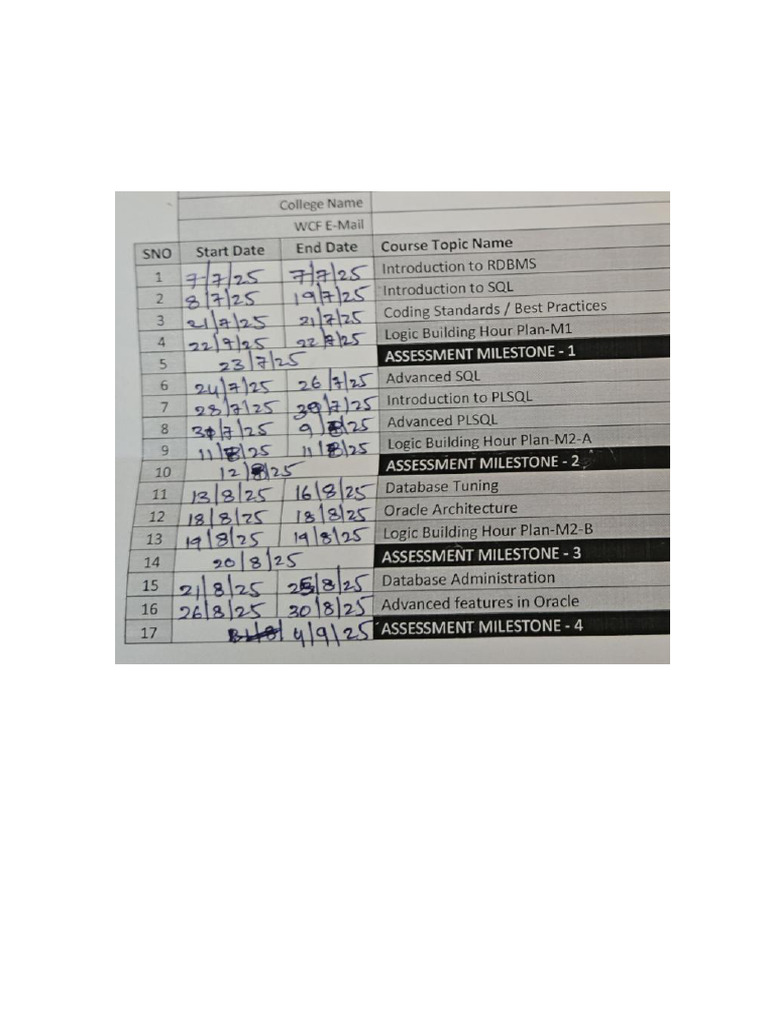 College Name
WCF E-Mail
SNO Start Date End Date Course Topic Name
1 7/7/25 7/7/25 Introduction to RDBMS
2 8/7/25 19/7/25 Introduction to SQL
3 21/7/25 21/7/25 Coding Standards / Best Practices
4 22/7/25 22/7/25 Logic Building Hour Plan-M1
5 23/7/25 ASSESSMENT MILESTONE - 1
6 24/7/25 26/7/25 Advanced SQL
7 28/7/25 30/7/25 Introduction to PLSQL
8 31/7/25 9/8/25 Advanced PLSQL
9 11/8/25 11/8/25 Logic Building Hour Plan-M2-A
10 12/8/25 ASSESSMENT MILESTONE - 2
11 13/8/25 16/8/25 Database Tuning
12 18/8/25 18/8/25 Oracle Architecture
13 19/8/25 19/8/25 Logic Building Hour Plan-M2-B
14 20/8/25 ASSESSMENT MILESTONE - 3
15 21/8/25 25/8/25 Database Administration
16 26/8/25 30/8/25 Advanced features in Oracle
17 4/9/25 ASSESSMENT MILESTONE - 4